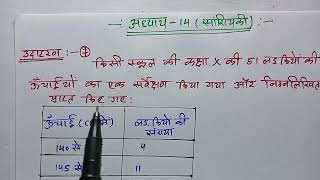 अध्याय-14 (सांख्यिकी)
उदाहरण :- ①
किसी स्कूल की कक्षा X की 51 लड़कियों की
ऊँचाईयों का एक सर्वेक्षण किया गया और निम्नलिखित
प्राप्त किए गए:
ऊँचाई (cm में) लड़कियों की
संख्या
140 से 4
145 से 11